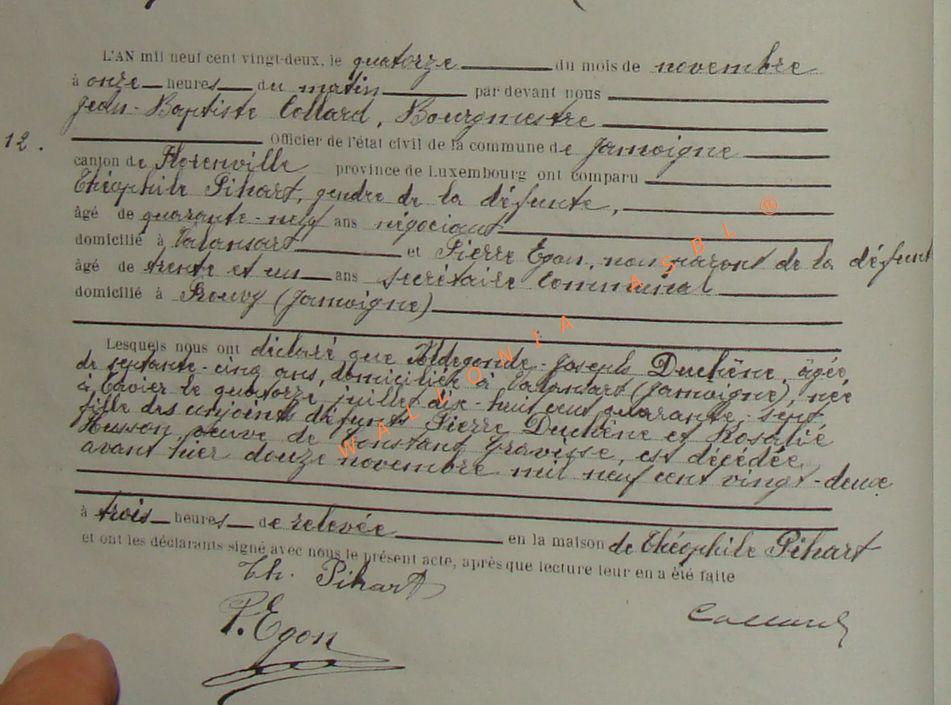 L'AN mil neuf cent vingt-deux, le quatorze du mois de novembre
à onze heures du matin par devant nous
Jean-Baptiste Collard, Bourgmestre
12. Officier de l'état civil de la commune de Jamoigne
canton de Florenville province de Luxembourg ont comparu
Théophile Pihart, gendre de la défunte,
âgé de quarante-neuf ans négociant
domicilié à Valansart et Pierre Egon, non parent de la défunte
âgé de trente et un ans secrétaire communal
domicilié à Prouvy (Jamoigne)
Lesquels nous ont déclaré que Aldegonde-Joseph Duchêne, âgée
de septante-cinq ans, domiciliée à Valansart (Jamoigne), née
à le quatorze juillet dix-huit cent quarante-sept
fille des conjoints défunts Pierre Duchêne et Rosalie
Husson, veuve de Constant Gravisse, est décédée
avant hier douze novembre mil neuf cent vingt-deux
à trois heures de relevée en la maison de Théophile Pihart
et ont les déclarants signé avec nous le présent acte, après que lecture leur en a été faite
Th. Pihart
Collard
P. Egon
WALLONIA ASBL ®